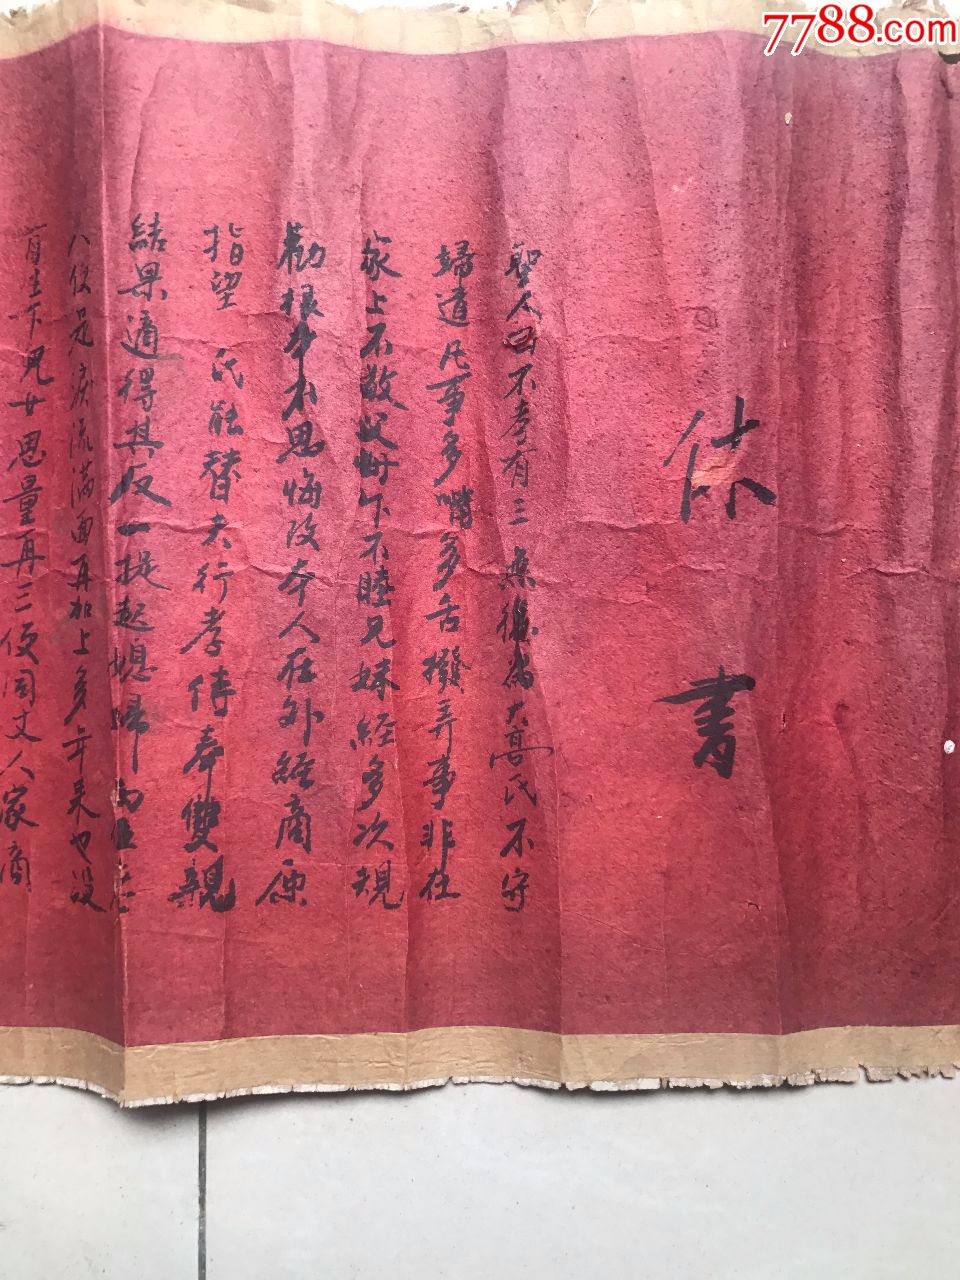 7788.com
休書
聖人曰不孝有三無後為大高氏不守
婦道凡事多嘴多舌撥弄事非在
家上不敬父母下不睦兄妹經多次規
勸根本不思悔改本人在外經商原
指望 氏能替夫行孝侍奉雙親
結果適得其反一提起媳婦
人便是淚流滿面再加上多年來也沒
有生下兒女思量再三便同丈人家商